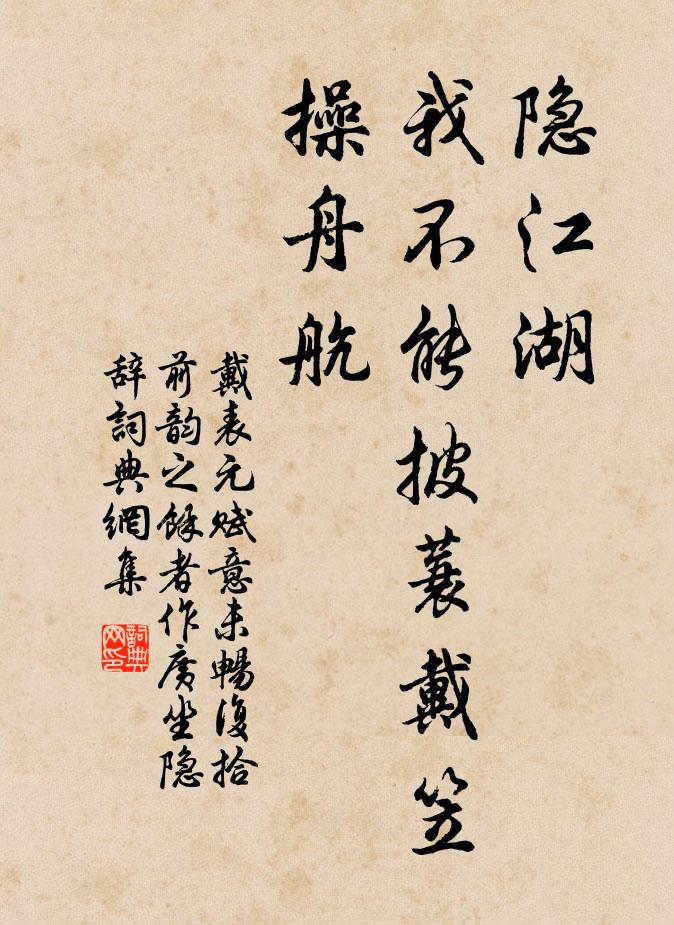 隐江湖
我不能披蓑戴笠
操舟航
戴表元赋意未暢復拾
前韵之餘者作廣坐隐
辞詞典網集
詞典
网印